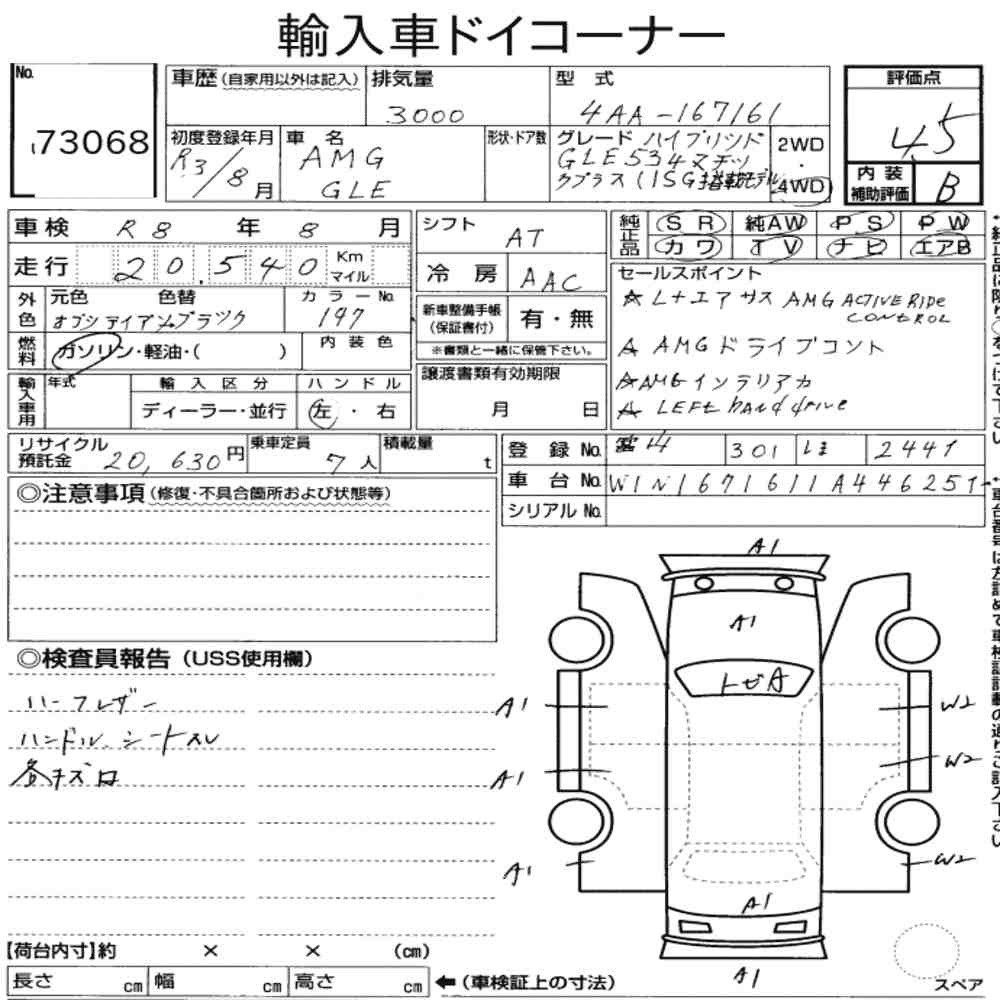 輸入車ドイコーナー
No. 173068
車歴(自家用以外は記入)
排気量 3000
型式 4AA-167161
評価点 4.5
内装補助評価 B
初度登録年月 R3/8月
車名 AMG GLE
形状・ドア数
グレード ハイブリッド
GLE53 4マチック
クプラス(ISG搭載モデル
2WD・4WD
車検 R8年8月
走行 20,540 Km マイル
シフト AT
冷房 AAC
純正品 SR 純AW PS PW
カワ TV ナビ エアB
外色 元色 色替
オブシディアンブラック
カラーNo. 197
内装色
燃料 ガソリン・軽油・( )
新車整備手帳(保証書付) 有・無
※書類と一緒に保管下さい。
譲渡書類有効期限
月 日
セールスポイント
☆ L+エアサス AMG ACTIVE RIDE CONTROL
☆ AMGドライブコント
☆ AMGインテリアカ
☆ LEFt hand drive
輸入車用 年式 輸入区分 ハンドル
ディーラー・並行 左・右
リサイクル預託金 20,630円
乗車定員 7人
積載量 t
登録No. 301 2447
車台No. W1N1671611A446257
シリアルNo.
◎注意事項(修復・不具合箇所および状態等)
◎検査員報告(USS使用欄)
ハーフレザー
ハンドル、シートスレ
各キズ
A1
A1
トビA
A1
A1
A1
W2
W2
W2
A1
A1
【荷台内寸】約 × × (cm)
長さ cm 幅 cm 高さ cm
←(車検証上の寸法)
スペア